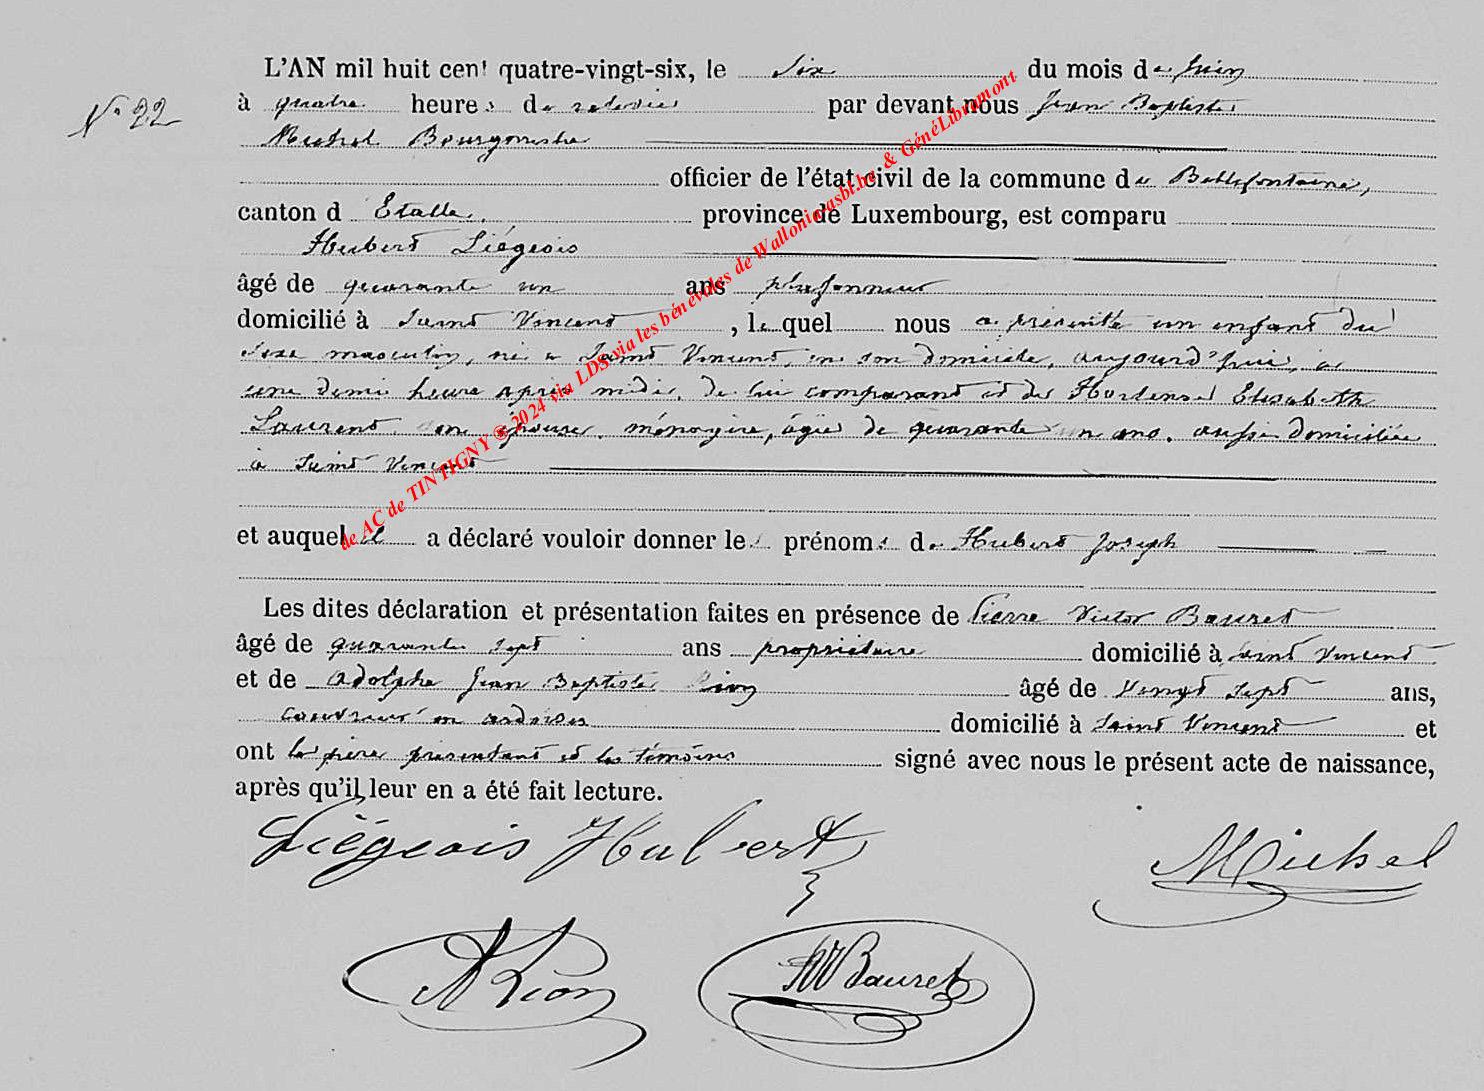 L'AN mil huit cent quatre-vingt-six, le six du mois de juin
N° 22
à quatre heures de relevée par devant nous Jean Baptiste
Michel Bourgmestre
officier de l'état civil de la commune de Bellefontaine,
canton d Etalle, province de Luxembourg, est comparu
Hubert Liégeois
âgé de quarante un ans plafonneur
domicilié à Saint Vincent, lequel nous a présenté un enfant du
sexe masculin, né à Saint Vincent, en son domicile, aujourd'hui, à
une demi heure après midi, de lui comparant et de Hortense Elisabeth
Laurent, son épouse, ménagère, âgée de quarante un ans, aussi domiciliée
à Saint Vincent
et auquel il a déclaré vouloir donner les prénoms de Hubert Joseph
Les dites déclaration et présentation faites en présence de Pierre Victor Bauret
âgé de quarante sept ans propriétaire domicilié à Saint Vincent
et de Adolphe Jean Baptiste Rion âgé de vingt sept ans,
couvreur en ardoises domicilié à Saint Vincent et
ont le père présentant et les témoins signé avec nous le présent acte de naissance,
après qu'il leur en a été fait lecture.
Liégeois Hubert
Michel
A Rion
Bauret
de AC de TINTIGNY ® 2024 via LDS via les bénévoles de Walloniaasbl.be & GénéLibramont